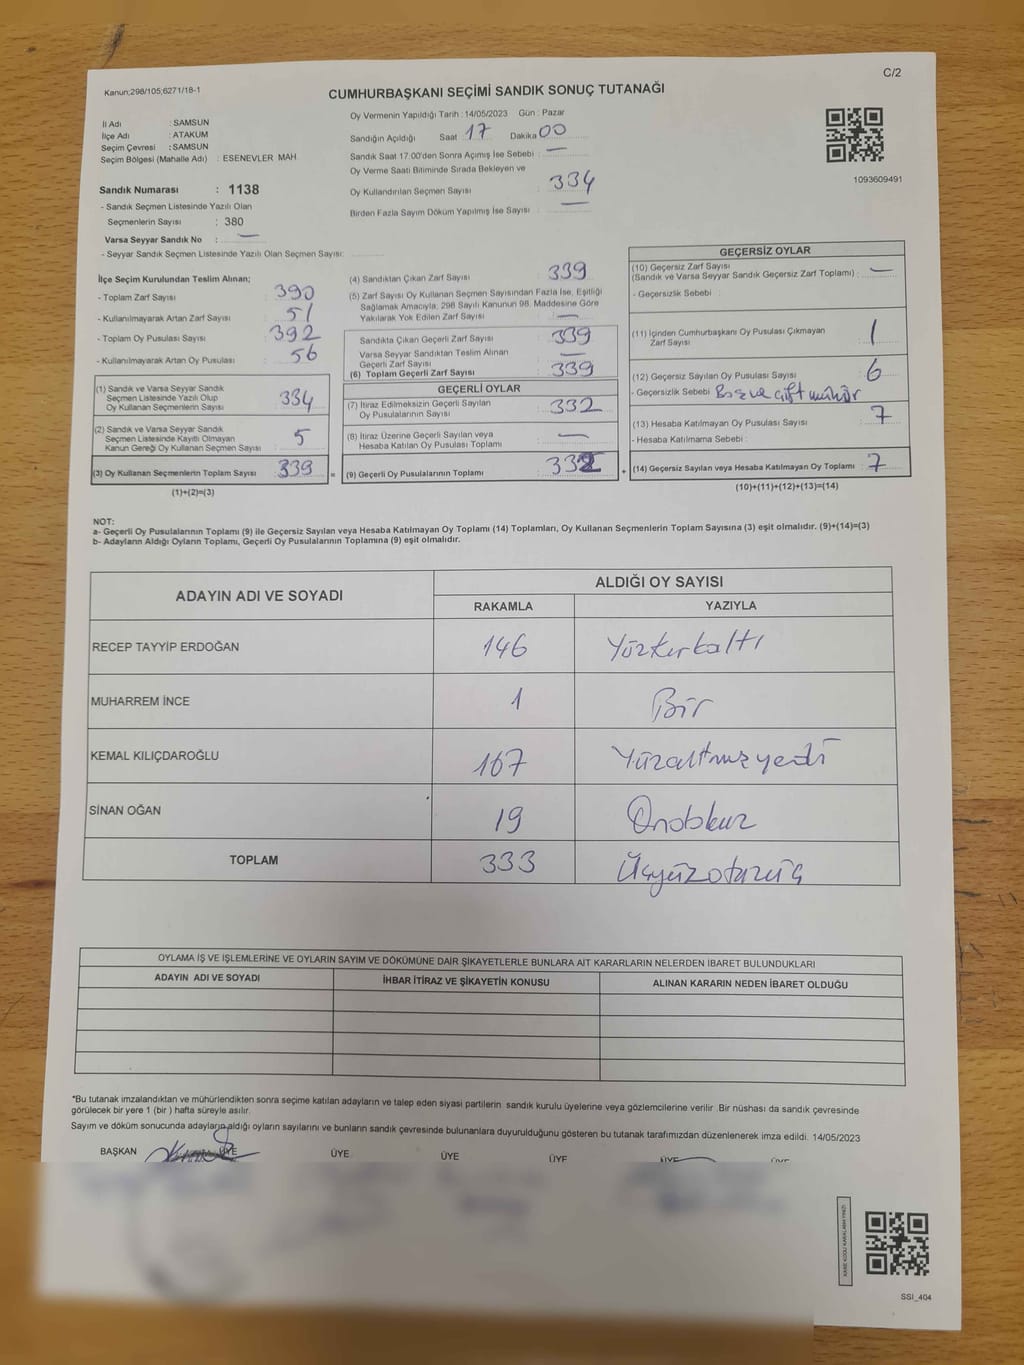 C/2
Kanun;298/105;6271/18-1
CUMHURBAŞKANI SEÇİMİ SANDIK SONUÇ TUTANAĞI
İl Adı : SAMSUN
İlçe Adı : ATAKUM
Seçim Çevresi : SAMSUN
Seçim Bölgesi (Mahalle Adı) : ESENEVLER MAH
Sandık Numarası : 1138
- Sandık Seçmen Listesinde Yazılı Olan
Seçmenlerin Sayısı : 380
Varsa Seyyar Sandık No : —
- Seyyar Sandık Seçmen Listesinde Yazılı Olan Seçmen Sayısı:
Oy Vermenin Yapıldığı Tarih : 14/05/2023 Gün : Pazar
Sandığın Açıldığı Saat 17 Dakika 00
Sandık Saat 17:00'den Sonra Açımış İse Sebebi : —
Oy Verme Saati Bitiminde Sırada Bekleyen ve
Oy Kullandırılan Seçmen Sayısı : 334
Birden Fazla Sayım Döküm Yapılmış İse Sayısı : —
1093609491
İlçe Seçim Kurulundan Teslim Alınan;
- Toplam Zarf Sayısı : 390
- Kullanılmayarak Artan Zarf Sayısı : 51
- Toplam Oy Pusulası Sayısı : 392
- Kullanılmayarak Artan Oy Pusulası : 56
(1) Sandık ve Varsa Seyyar Sandık
Seçmen Listesinde Yazılı Olup
Oy Kullanan Seçmenlerin Sayısı : 334
(2) Sandık ve Varsa Seyyar Sandık
Seçmen Listesinde Kayıtlı Olmayan
Kanun Gereği Oy Kullanan Seçmen Sayısı : 5
(3) Oy Kullanan Seçmenlerin Toplam Sayısı : 339
(1)+(2)=(3)
(4) Sandıktan Çıkan Zarf Sayısı : 339
(5) Zarf Sayısı Oy Kullanan Seçmen Sayısından Fazla İse, Eşitliği
Sağlamak Amacıyla, 298 Sayılı Kanunun 98. Maddesine Göre
Yakılarak Yok Edilen Zarf Sayısı : —
Sandıkta Çıkan Geçerli Zarf Sayısı : 339
Varsa Seyyar Sandıktan Teslim Alınan
Geçerli Zarf Sayısı : —
(6) Toplam Geçerli Zarf Sayısı : 339
GEÇERLİ OYLAR
(7) İtiraz Edilmeksizin Geçerli Sayılan
Oy Pusulalarının Sayısı : 332
(8) İtiraz Üzerine Geçerli Sayılan veya
Hesaba Katılan Oy Pusulası Toplamı : —
(9) Geçerli Oy Pusulalarının Toplamı : 332
GEÇERSİZ OYLAR
(10) Geçersiz Zarf Sayısı
(Sandık ve Varsa Seyyar Sandık Geçersiz Zarf Toplamı) : —
- Geçersizlik Sebebi :
(11) İçinden Cumhurbaşkanı Oy Pusulası Çıkmayan
Zarf Sayısı : 1
(12) Geçersiz Sayılan Oy Pusulası Sayısı : 6
- Geçersizlik Sebebi Boş ve çift mühür
(13) Hesaba Katılmayan Oy Pusulası Sayısı : 7
- Hesaba Katılmama Sebebi :
(14) Geçersiz Sayılan veya Hesaba Katılmayan Oy Toplamı : 7
(10)+(11)+(12)+(13)=(14)
NOT:
a- Geçerli Oy Pusulalarının Toplamı (9) ile Geçersiz Sayılan veya Hesaba Katılmayan Oy Toplamı (14) Toplamları, Oy Kullanan Seçmenlerin Toplam Sayısına (3) eşit olmalıdır. (9)+(14)=(3)
b- Adayların Aldığı Oyların Toplamı, Geçerli Oy Pusulalarının Toplamına (9) eşit olmalıdır.
ADAYIN ADI VE SOYADI
ALDIĞI OY SAYISI
RAKAMLA YAZIYLA
RECEP TAYYİP ERDOĞAN 146 Yüzkırkaltı
MUHARREM İNCE 1 Bir
KEMAL KILIÇDAROĞLU 167 Yüzaltmışyedi
SİNAN OĞAN 19 Ondokuz
TOPLAM 333 Üçyüzotuzüç
OYLAMA İŞ VE İŞLEMLERİNE VE OYLARIN SAYIM VE DÖKÜMÜNE DAİR ŞİKAYETLERLE BUNLARA AİT KARARLARIN NELERDEN İBARET BULUNDUKLARI
ADAYIN ADI VE SOYADI İHBAR İTİRAZ VE ŞİKAYETİN KONUSU ALINAN KARARIN NEDEN İBARET OLDUĞU
*Bu tutanak imzalandıktan ve mühürlendikten sonra seçime katılan adayların ve talep eden siyasi partilerin sandık kurulu üyelerine veya gözlemcilerine verilir .Bir nüshası da sandık çevresinde
görülecek bir yere 1 (bir ) hafta süreyle asılır.
Sayım ve döküm sonucunda adayların aldığı oyların sayılarını ve bunların sandık çevresinde bulunanlara duyurulduğunu gösteren bu tutanak tarafımızdan düzenlenerek imza edildi. 14/05/2023
BAŞKAN ÜYE ÜYE ÜYE ÜYE ÜYE ÜYE
SSI_404